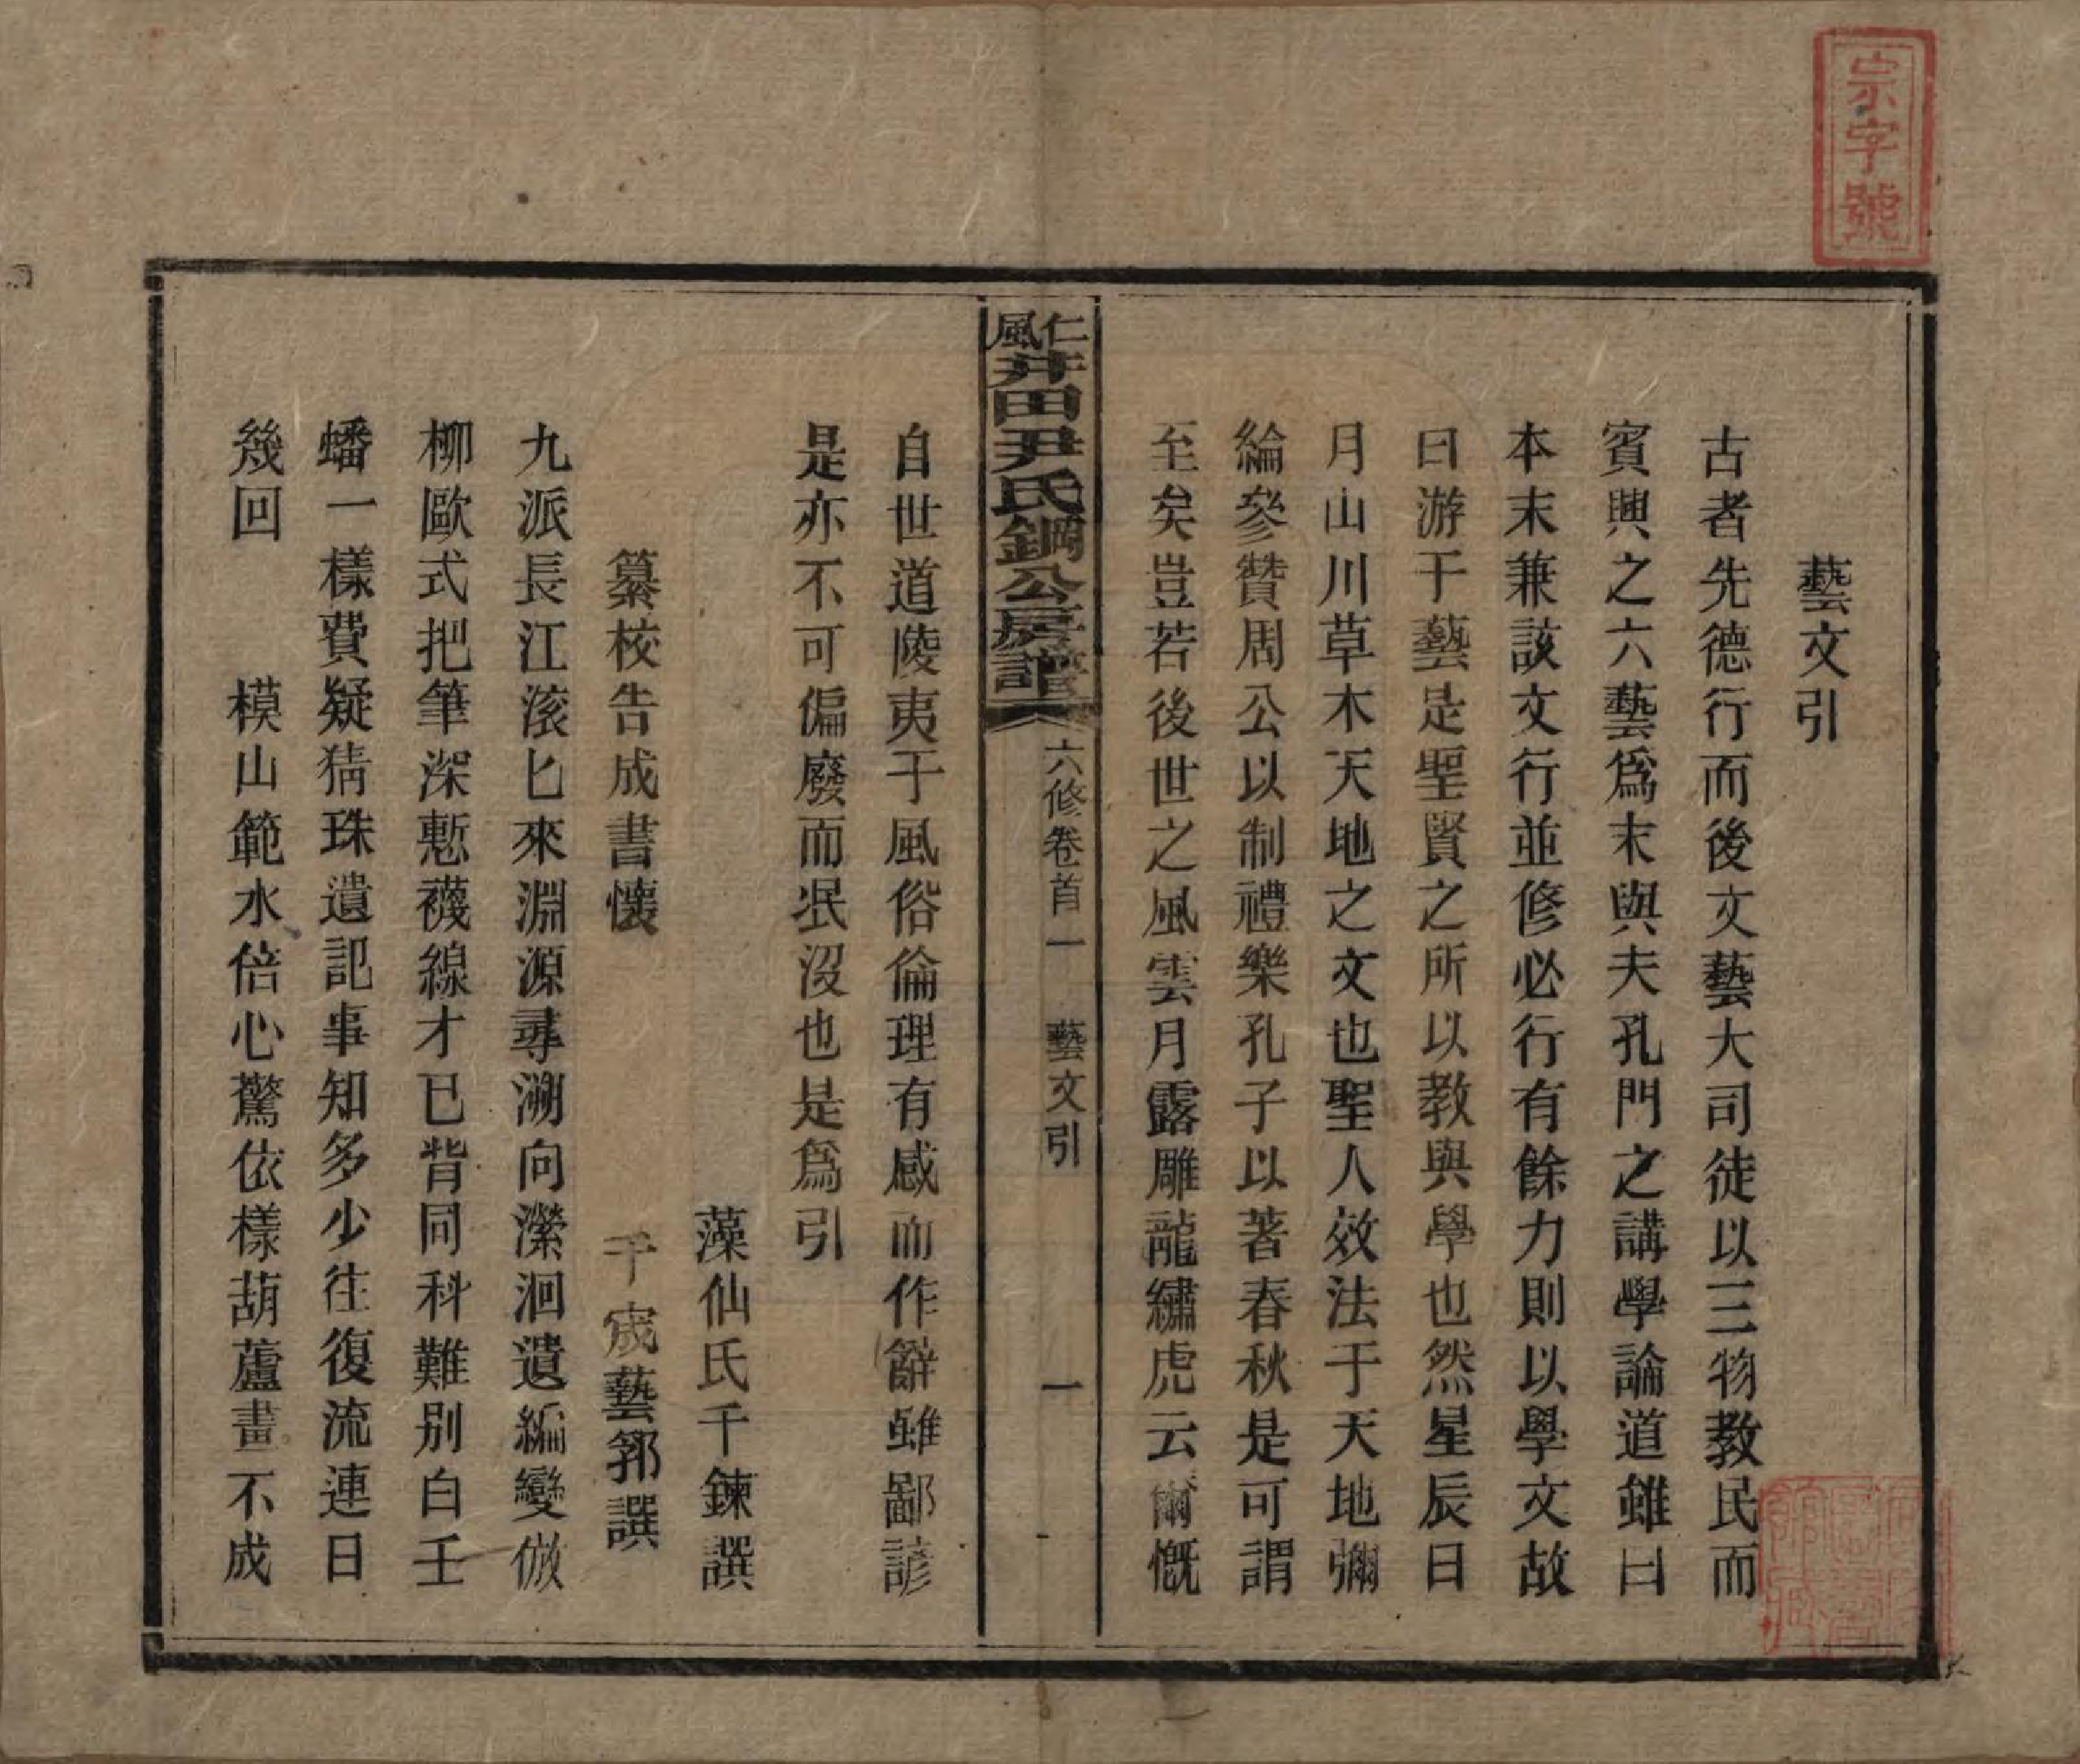 宗字號
藝文引
古者先德行而後文藝大司徒以三物教民而
賓興之六藝爲末與夫孔門之講學論道雖曰
本末兼該文行並修必行有餘力則以學文故
曰游于藝是聖賢之所以教與學也然星辰日
月山川草木天地之文也聖人效法于天地彌
綸參贊周公以制禮樂孔子以著春秋是可謂
至矣豈若後世之風雲月露雕龍繡虎云爾慨
仁風井田尹氏鋼公房譜 六修卷首一 藝文引 一
自世道陵夷于風俗倫理有感而作辭雖鄙諺
是亦不可偏廢而泯沒也是爲引
藻仙氏千鍊譔
纂校告成書懷 千宬藝郛譔
九派長江滚匕來淵源尋溯向瀠洄遺編變倣
柳歐式把筆深慙襪線才已背同科難別白壬
蟠一樣費疑猜珠遺記事知多少往復流連日
幾回 模山範水倍心驚依樣葫蘆畫不成